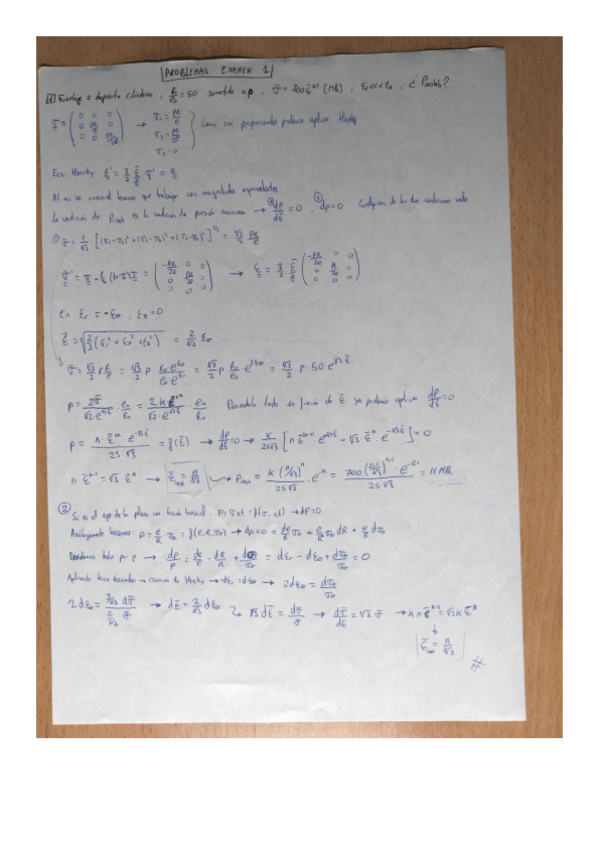 PROBLEMAS EXAMEN 1
depósito cilíndrico, R₀/e₀ = 50 sometido a p, σ̄ = 700 ε̄^0,1 [MPa], ¿ ?
σ = (0 0 0; 0 pR/2e 0; 0 0 pR/e) → σ₁ = pR/e
σ₂ = pR/2e
σ₃ = 0
Como son proporcionales podemos aplicar Hencky
Ecu. Hencky ε' = 3/2 ε̄/σ̄ · σ' = ε
Al no ser uniaxial tenemos que trabajar con magnitudes equivalentes
La condición de Pinst es la condición de presión máxima → ① dp/dε̄ = 0, ② dp = 0 Cualquiera de las dos condiciones vale.
① σ̄ = 1/√2 [(σ₁-σ₂)² + (σ₂-σ₃)² + (σ₁-σ₃)²]^1/2 = √3/2 pR/e
σ' = σ - 1/3 (tr σ) I = (-pR/2e 0 0; 0 pR/2e 0; 0 0 0) → ε = 3/2 ε̄/σ̄ (-pR/2e 0 0; 0 pR/2e 0; 0 0 0)
εr = -εθ, εz = 0
ε̄ = √(2/3 (ε₁² + ε₂² + ε₃²)) = 2/√3 εθ
σ̄ = √3/2 p R/e = √3/2 p R₀·e^εθ / e₀·e^εr = √3/2 p R₀/e₀ · e^2εθ = √3/2 p · 50 · e^√3ε̄
p = 2σ̄/√3·e^√3ε̄ · e₀/R₀ = 2Kε̄^n/√3·e^√3ε̄ · e₀/R₀ Poniendolo todo en función de ε̄ ya podemos aplicar dp/dε̄ = 0
p = K·ε̄^n·e^-√3ε̄ / 25√3 = f(ε̄) → dp/dε̄ = 0 → K/25√3 [n ε̄^n-1 · e^-√3ε̄ - √3 ε̄^n · e^-√3ε̄] = 0
n·ε̄^n-1 = √3·ε̄^n → ε̄inst = n/√3 → Pinst = K (n/√3)^n / 25√3 · e^-n = 700 (0,1/√3)^0,1 · e^-0,1 / 25√3 = 11 MPa
② dF = 0
Análogamente hacemos: p = e/R · σθ = f(e, R, σθ) → dp = 0 = de/R σθ + e/R² σθ dR + e/R dσθ
Dividimos todo por p → dp/p = de/e - dR/R + dσθ/σθ = dεr - dεθ + dσθ/σθ = 0
Aplicando → ecuación de Hencky → -dεr = dεθ → 2dεθ = dσθ/σθ
2dεθ = 2/√3 dσ̄ / 2/√3 σ̄ → dε̄ = 2/√3 dεθ → √3 dε̄ = dσ̄/σ̄ → dσ̄/dε̄ = √3 σ̄ → K n ε̄^n-1 = √3 K ε̄^n
ε̄inst = n/√3
#